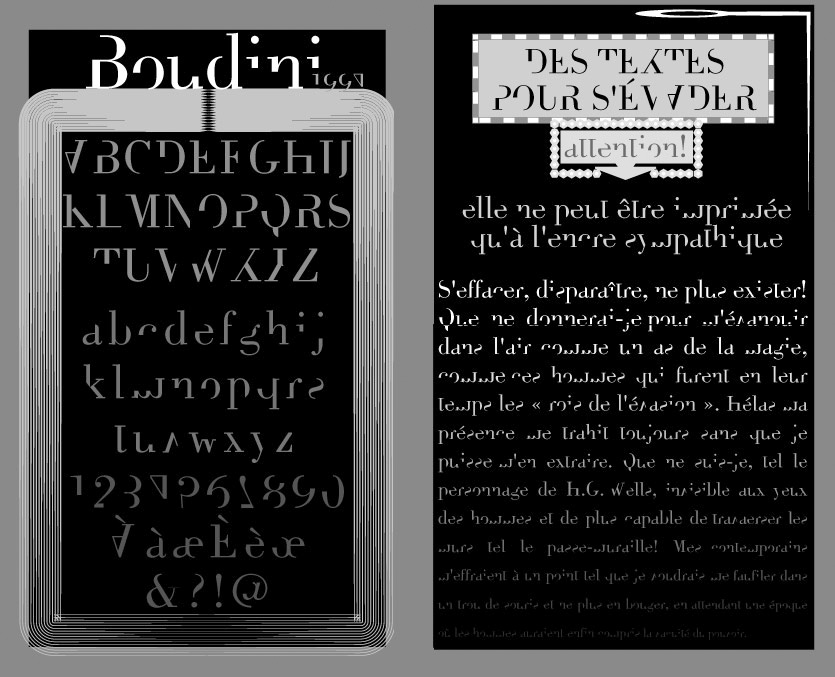 Boudini
1997
ABCDEFGHIJ
KLMNOPQRS
TUVWXYZ
abcdefghij
klmnopqrs
tuvwxyz
1234567890
ÀàæÈèœ
&?!@
DES TEXTES
POUR S'ÉVADER
attention!
elle ne peut être imprimée
qu'à l'encre sympathique
S'effacer, disparaître, ne plus exister!
Que ne donnerai-je pour m'évanouir
dans l'air comme un as de la magie,
comme ces hommes qui furent en leur
temps les « rois de l'évasion ». Hélas ma
présence me trahit toujours sans que je
puisse m'en extraire. Que ne suis-je, tel le
personnage de H.G. Wells, invisible aux yeux
des hommes et de plus capable de traverser les
murs tel le passe-muraille! Mes contemporains
m'effraient à un point tel que je voudrais me faufiler dans
un trou de souris et ne plus en bouger, en attendant une époque
où les hommes auraient enfin compris la vanité du pouvoir.